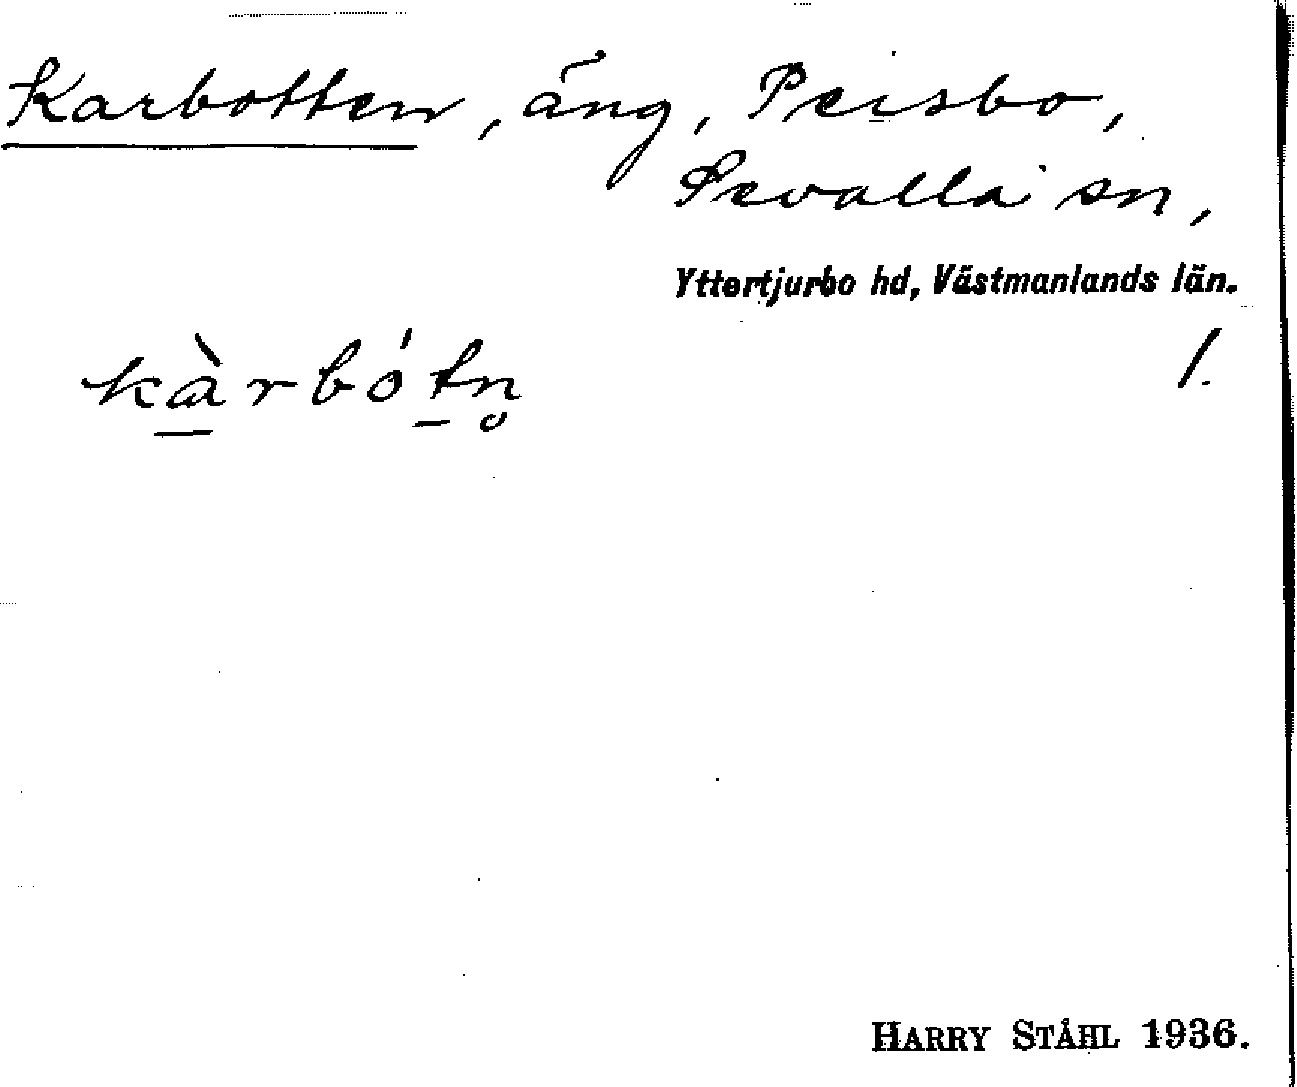 Karbotten, äng, Peisbo,
Sevalla sn,
Yttertjurbo hd, Västmanlands län.
kàrbótn̥ 1.
HARRY STÅHL 1936.